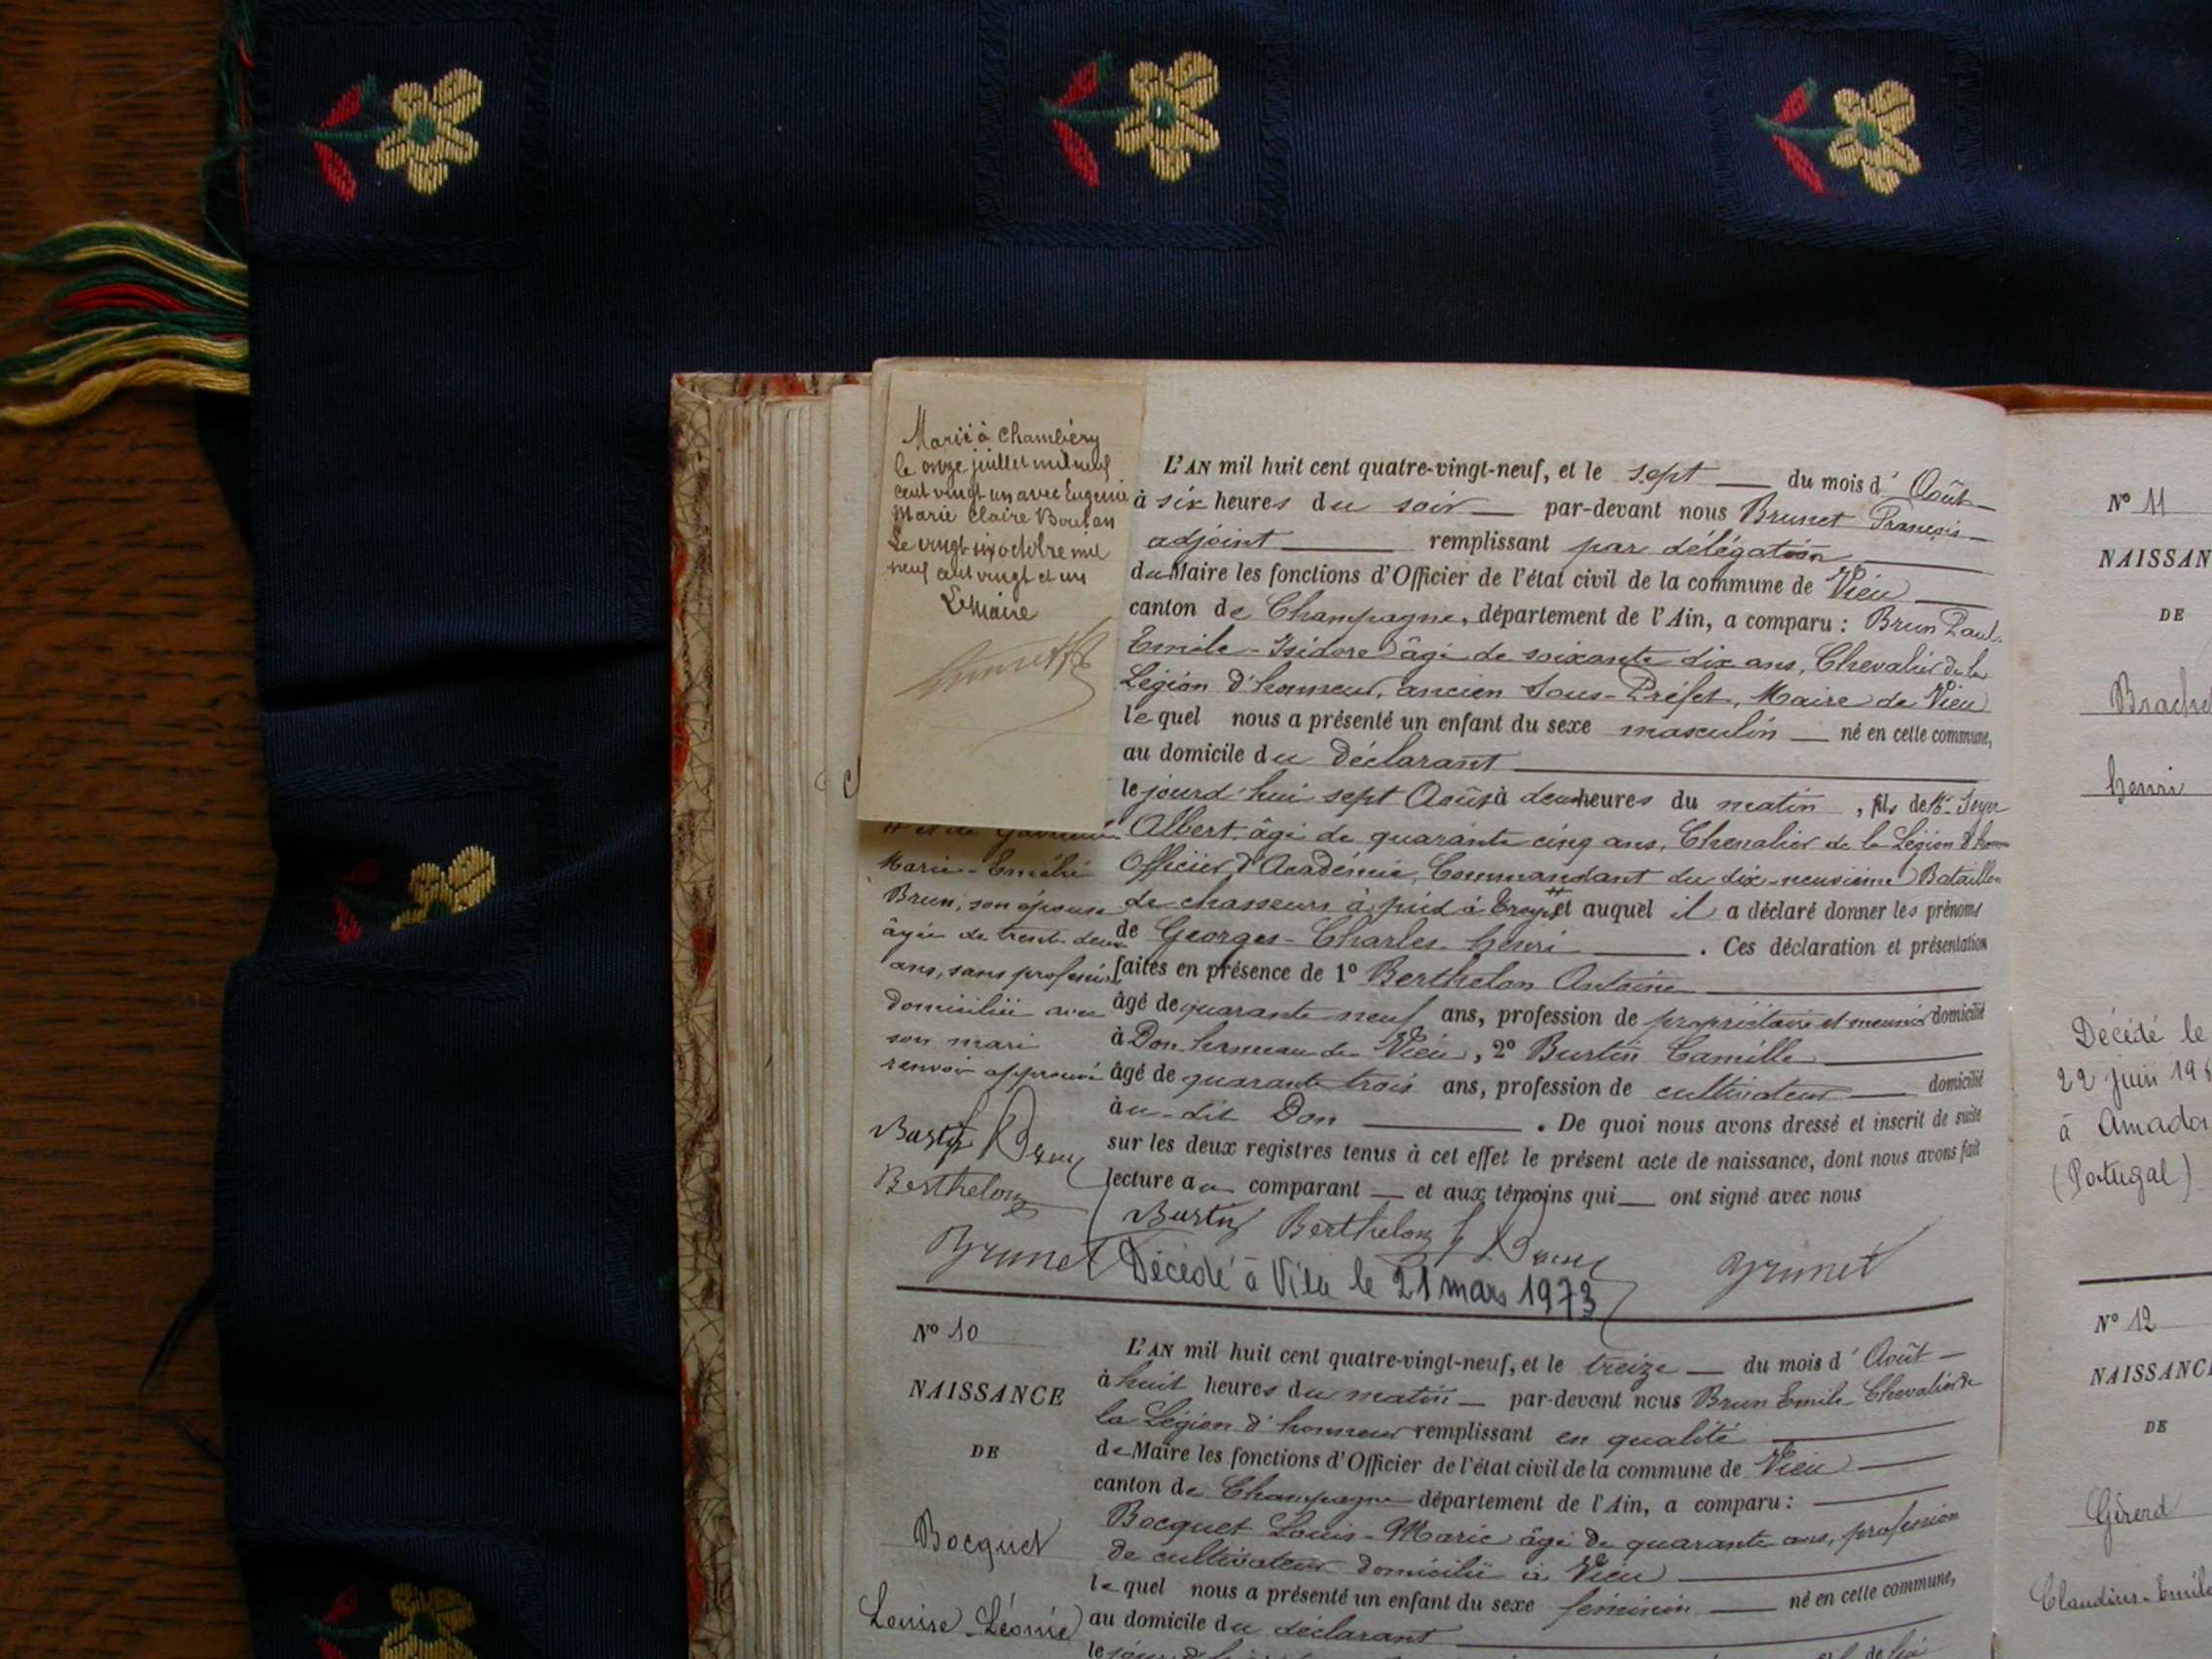 Marié à Chambéry
le onze juillet mil neuf
cent vingt un avec Eugénie
Marie Claire Boutan
Le vingt six octobre mil
neuf cent vingt et un
Le Maire
L'AN mil huit cent quatre-vingt-neuf, et le sept du mois d' Août
à six heures du soir par-devant nous Brunet François
adjoint remplissant par délégation
du Maire les fonctions d'Officier de l'état civil de la commune de Vieu
canton de Champagne, département de l'Ain, a comparu : Brun Paul-
Emile-Isidore âgé de soixante dix ans, Chevalier de la
Légion d'honneur, ancien Sous-Préfet, Maire de Vieu
lequel nous a présenté un enfant du sexe masculin né en cette commune,
au domicile du déclarant
le jourd'hui sept Août à deux heures du matin, fils de Mr
Albert, âgé de quarante cinq ans, Chevalier de la Légion d'hon
Officier d'Académie, Commandant du dix-neuvième Bataillon
de chasseurs à pied à Troyes # et auquel il a déclaré donner les prénoms
de Georges-Charles-henri . Ces déclaration et présentation
faites en présence de 1° Berthelon Antoine
âgé de quarante neuf ans, profession de propriétaire et meunier domicilié
à Don hameau de Vieu, 2° Burtin Camille
âgé de quarante trois ans, profession de cultivateur domicilié
au-dit Don . De quoi nous avons dressé et inscrit de suite
sur les deux registres tenus à cet effet le présent acte de naissance, dont nous avons fait
lecture au comparant et aux témoins qui ont signé avec nous
# et de Gabrielle
Marie-Emélie
Brun, son épouse
âgée de trente deux
ans, sans profession
domiciliée avec
son mari
renvoi approuvé
Burtin Brun
Berthelon
Brunet
Burtin Berthelon Brun Brunet
Décédé à Vieu le 21 mars 1973
N° 10
NAISSANCE
DE
Bocquet
Louise-Léonie
L'AN mil huit cent quatre-vingt-neuf, et le treize du mois d' Août
à huit heures du matin par-devant nous Brun Emile Chevalier de
la Légion d'honneur remplissant en qualité
de Maire les fonctions d'Officier de l'état civil de la commune de Vieu
canton de Champagne département de l'Ain, a comparu :
Bocquet Louis-Marie âgé de quarante ans, profession
de cultivateur domicilié à Vieu
lequel nous a présenté un enfant du sexe féminin né en cette commune,
au domicile du déclarant
N° 11
NAISSAN
DE
Brache
henri
Décédé le
22 juin 196
à Amado
(Portugal)
N° 12
NAISSANCE
DE
Girerd
Claudius-Emile